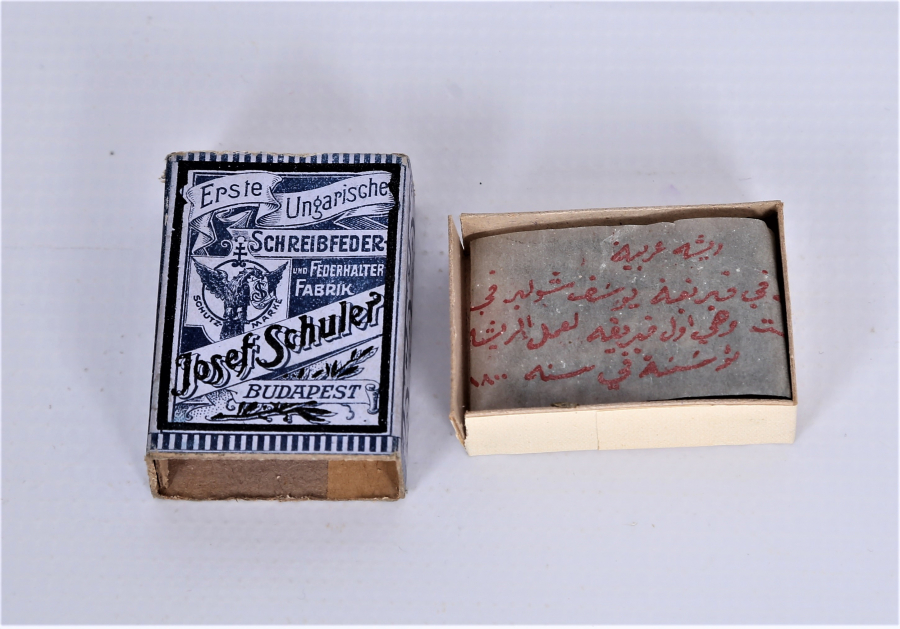 Erste
Ungarische
SCHREIBFEDER-
UND FEDERHALTER
FABRIK
SCHUTZ MARKE
Josef Schuler
BUDAPEST
ريشه عربيه
في فبريقة يوسف شولير في
وهي اول فبريقه لعمل الريش
مؤسسة في سنه ١٨٠٠